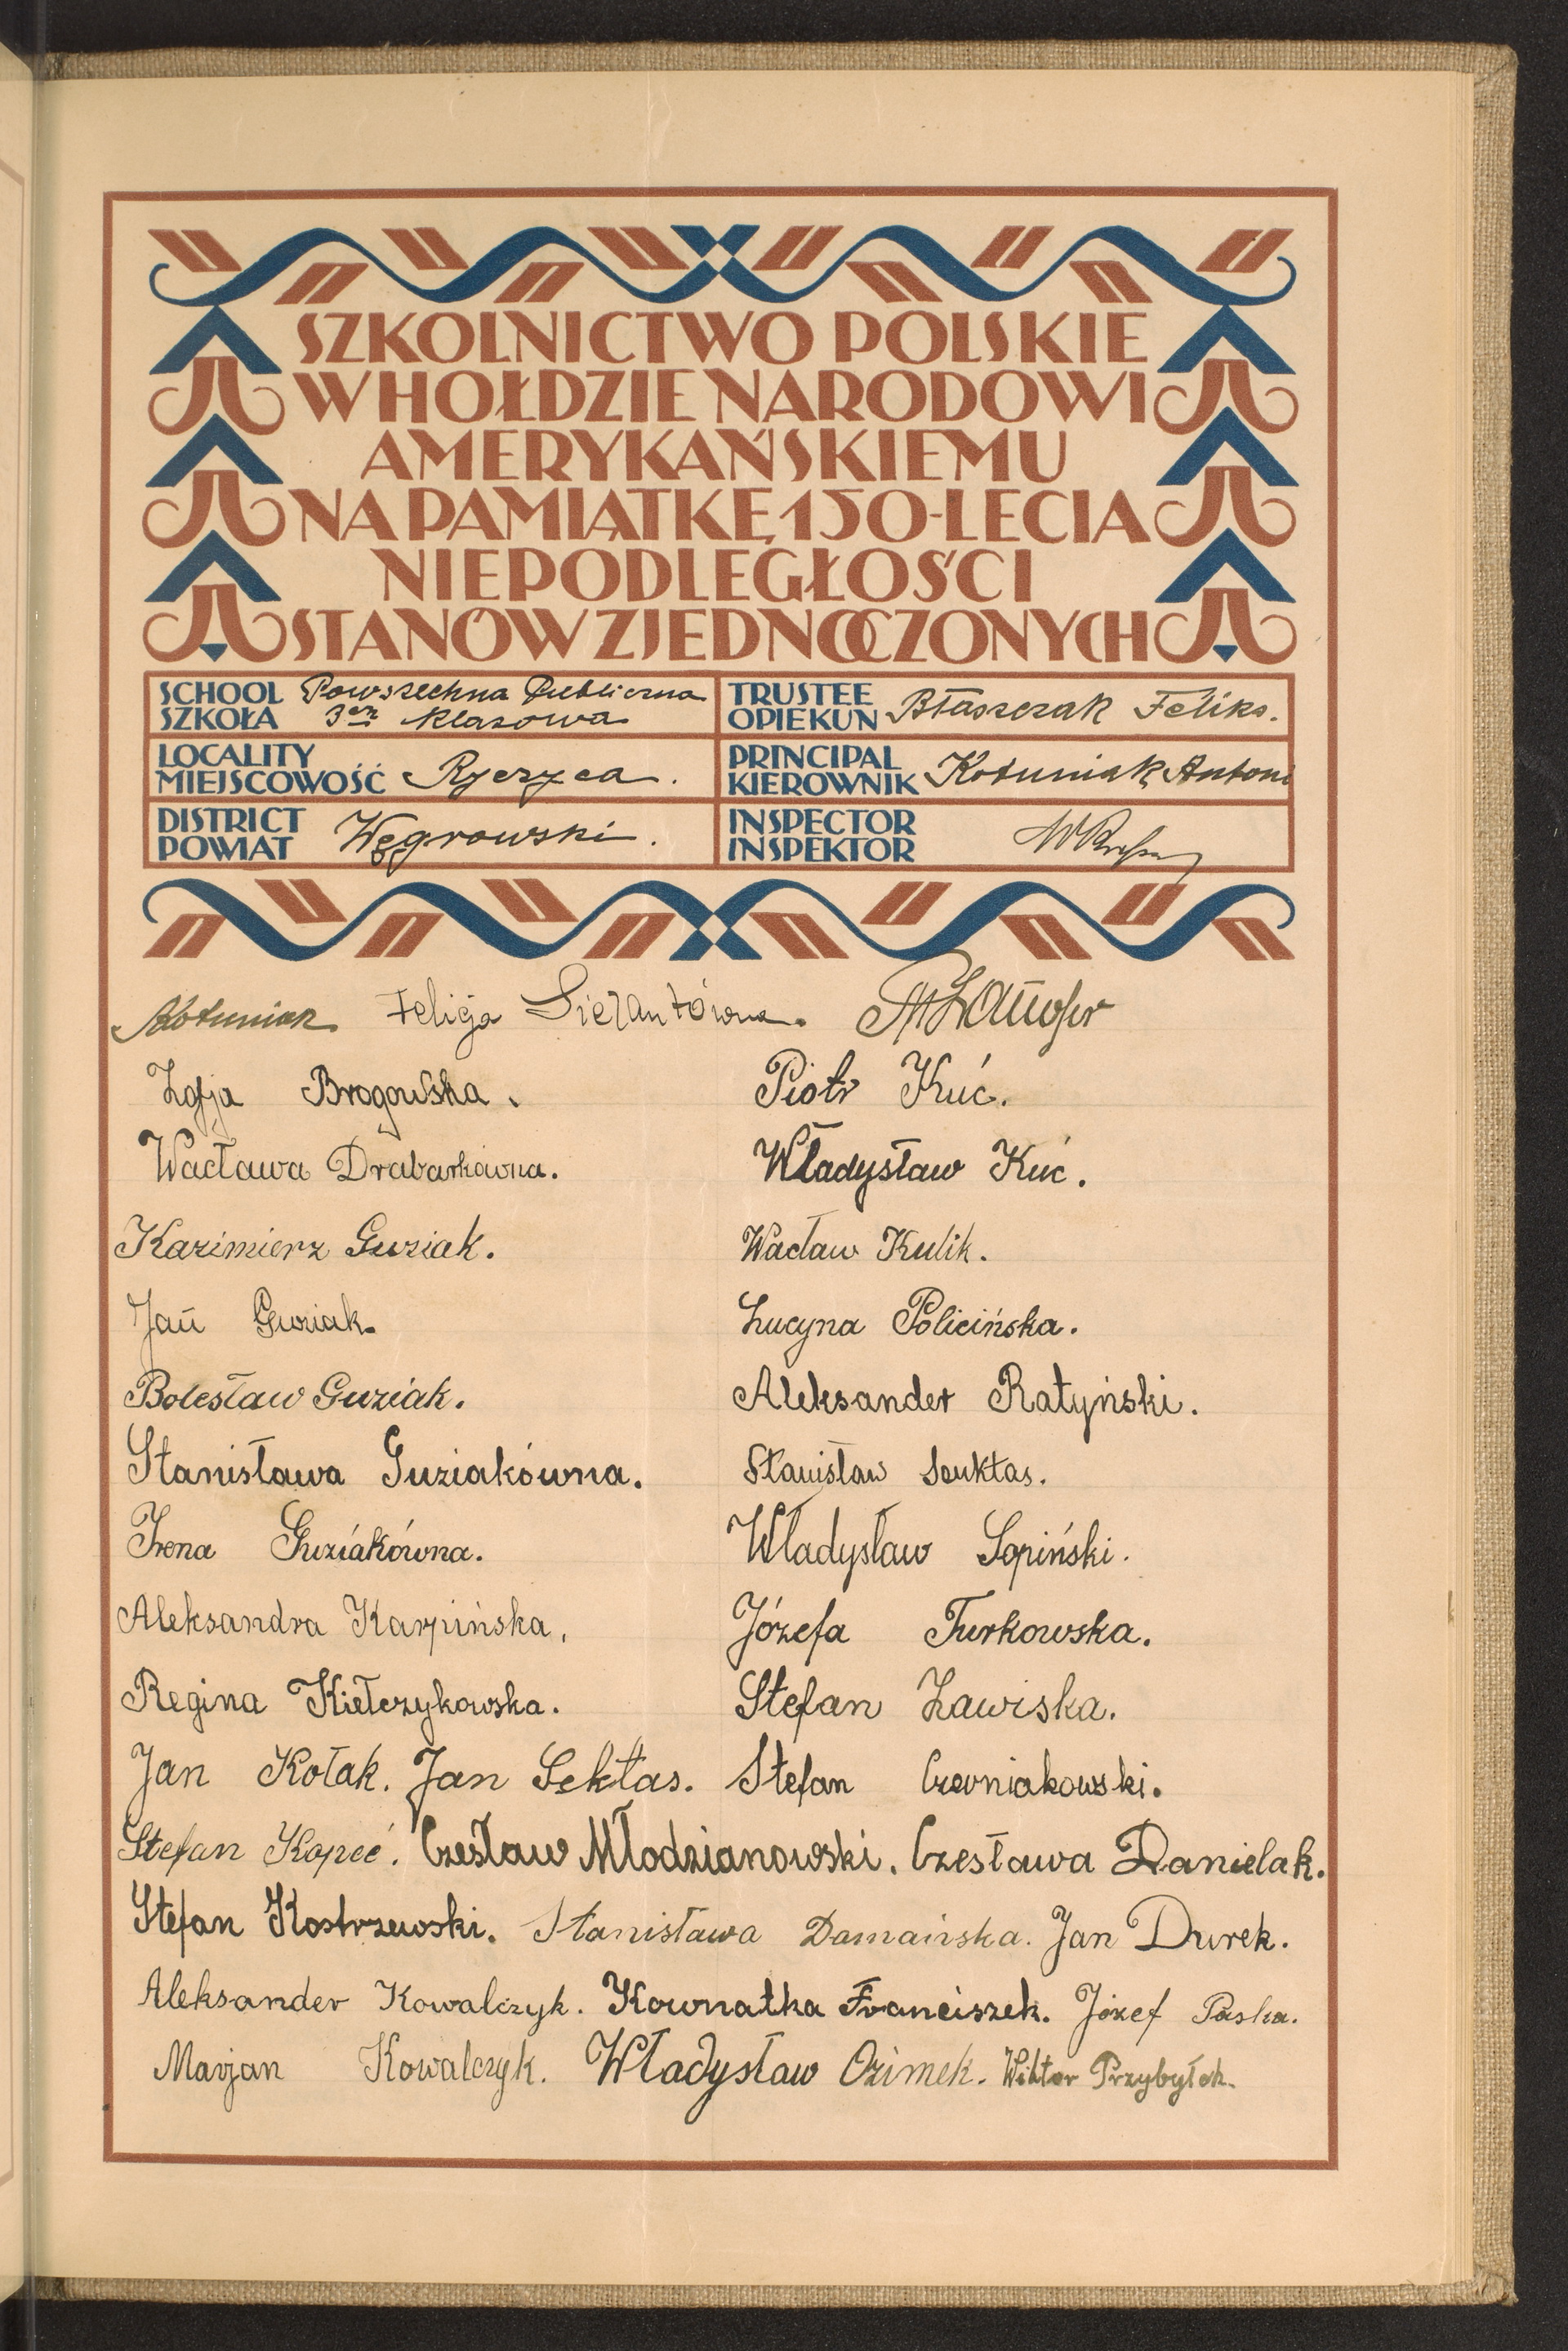 SZKOLNICTWO POLSKIE
W HOŁDZIE NARODOWI
AMERYKAŃSKIEMU
NA PAMIĄTKĘ 150-LECIA
NIEPODLEGŁOŚCI
STANÓW ZJEDNOCZONYCH
SCHOOL SZKOŁA Powszechna Publiczna 3em klasowa
TRUSTEE OPIEKUN Błaszczak Feliks.
LOCALITY MIEJSCOWOŚĆ
PRINCIPAL KIEROWNIK Kotuniak Antoni
DISTRICT POWIAT Węgrowski.
INSPECTOR INSPEKTOR
Kotuniak Felicja
Zofja Brogowska. Piotr Kuć.
Wacława Drabarkówna. Władysław Kuć.
Kazimierz Guziak. Wacław Kulik.
Jan Guziak. Lucyna Policińska.
Bolesław Guziak. Aleksander Ratyński.
Stanisława Guziakówna. Stanisław Senktas.
Irena Guziakówna. Władysław Sopiński.
Aleksandra Karpińska. Józefa Turkowska.
Regina Kiełczykowska. Stefan Zawiska.
Jan Kołak. Jan Sektas. Stefan Czerniakowski.
Stefan Kopeć. Czesław Młodzianowski. Czesława Danielak.
Stefan Kostrzewski. Stanisława Damaińska. Jan Durek.
Aleksander Kowalczyk. Kownatka Franciszek. Józef Paska.
Marjan Kowalczyk. Władysław Ozimek. Wiktor Przybyłek.